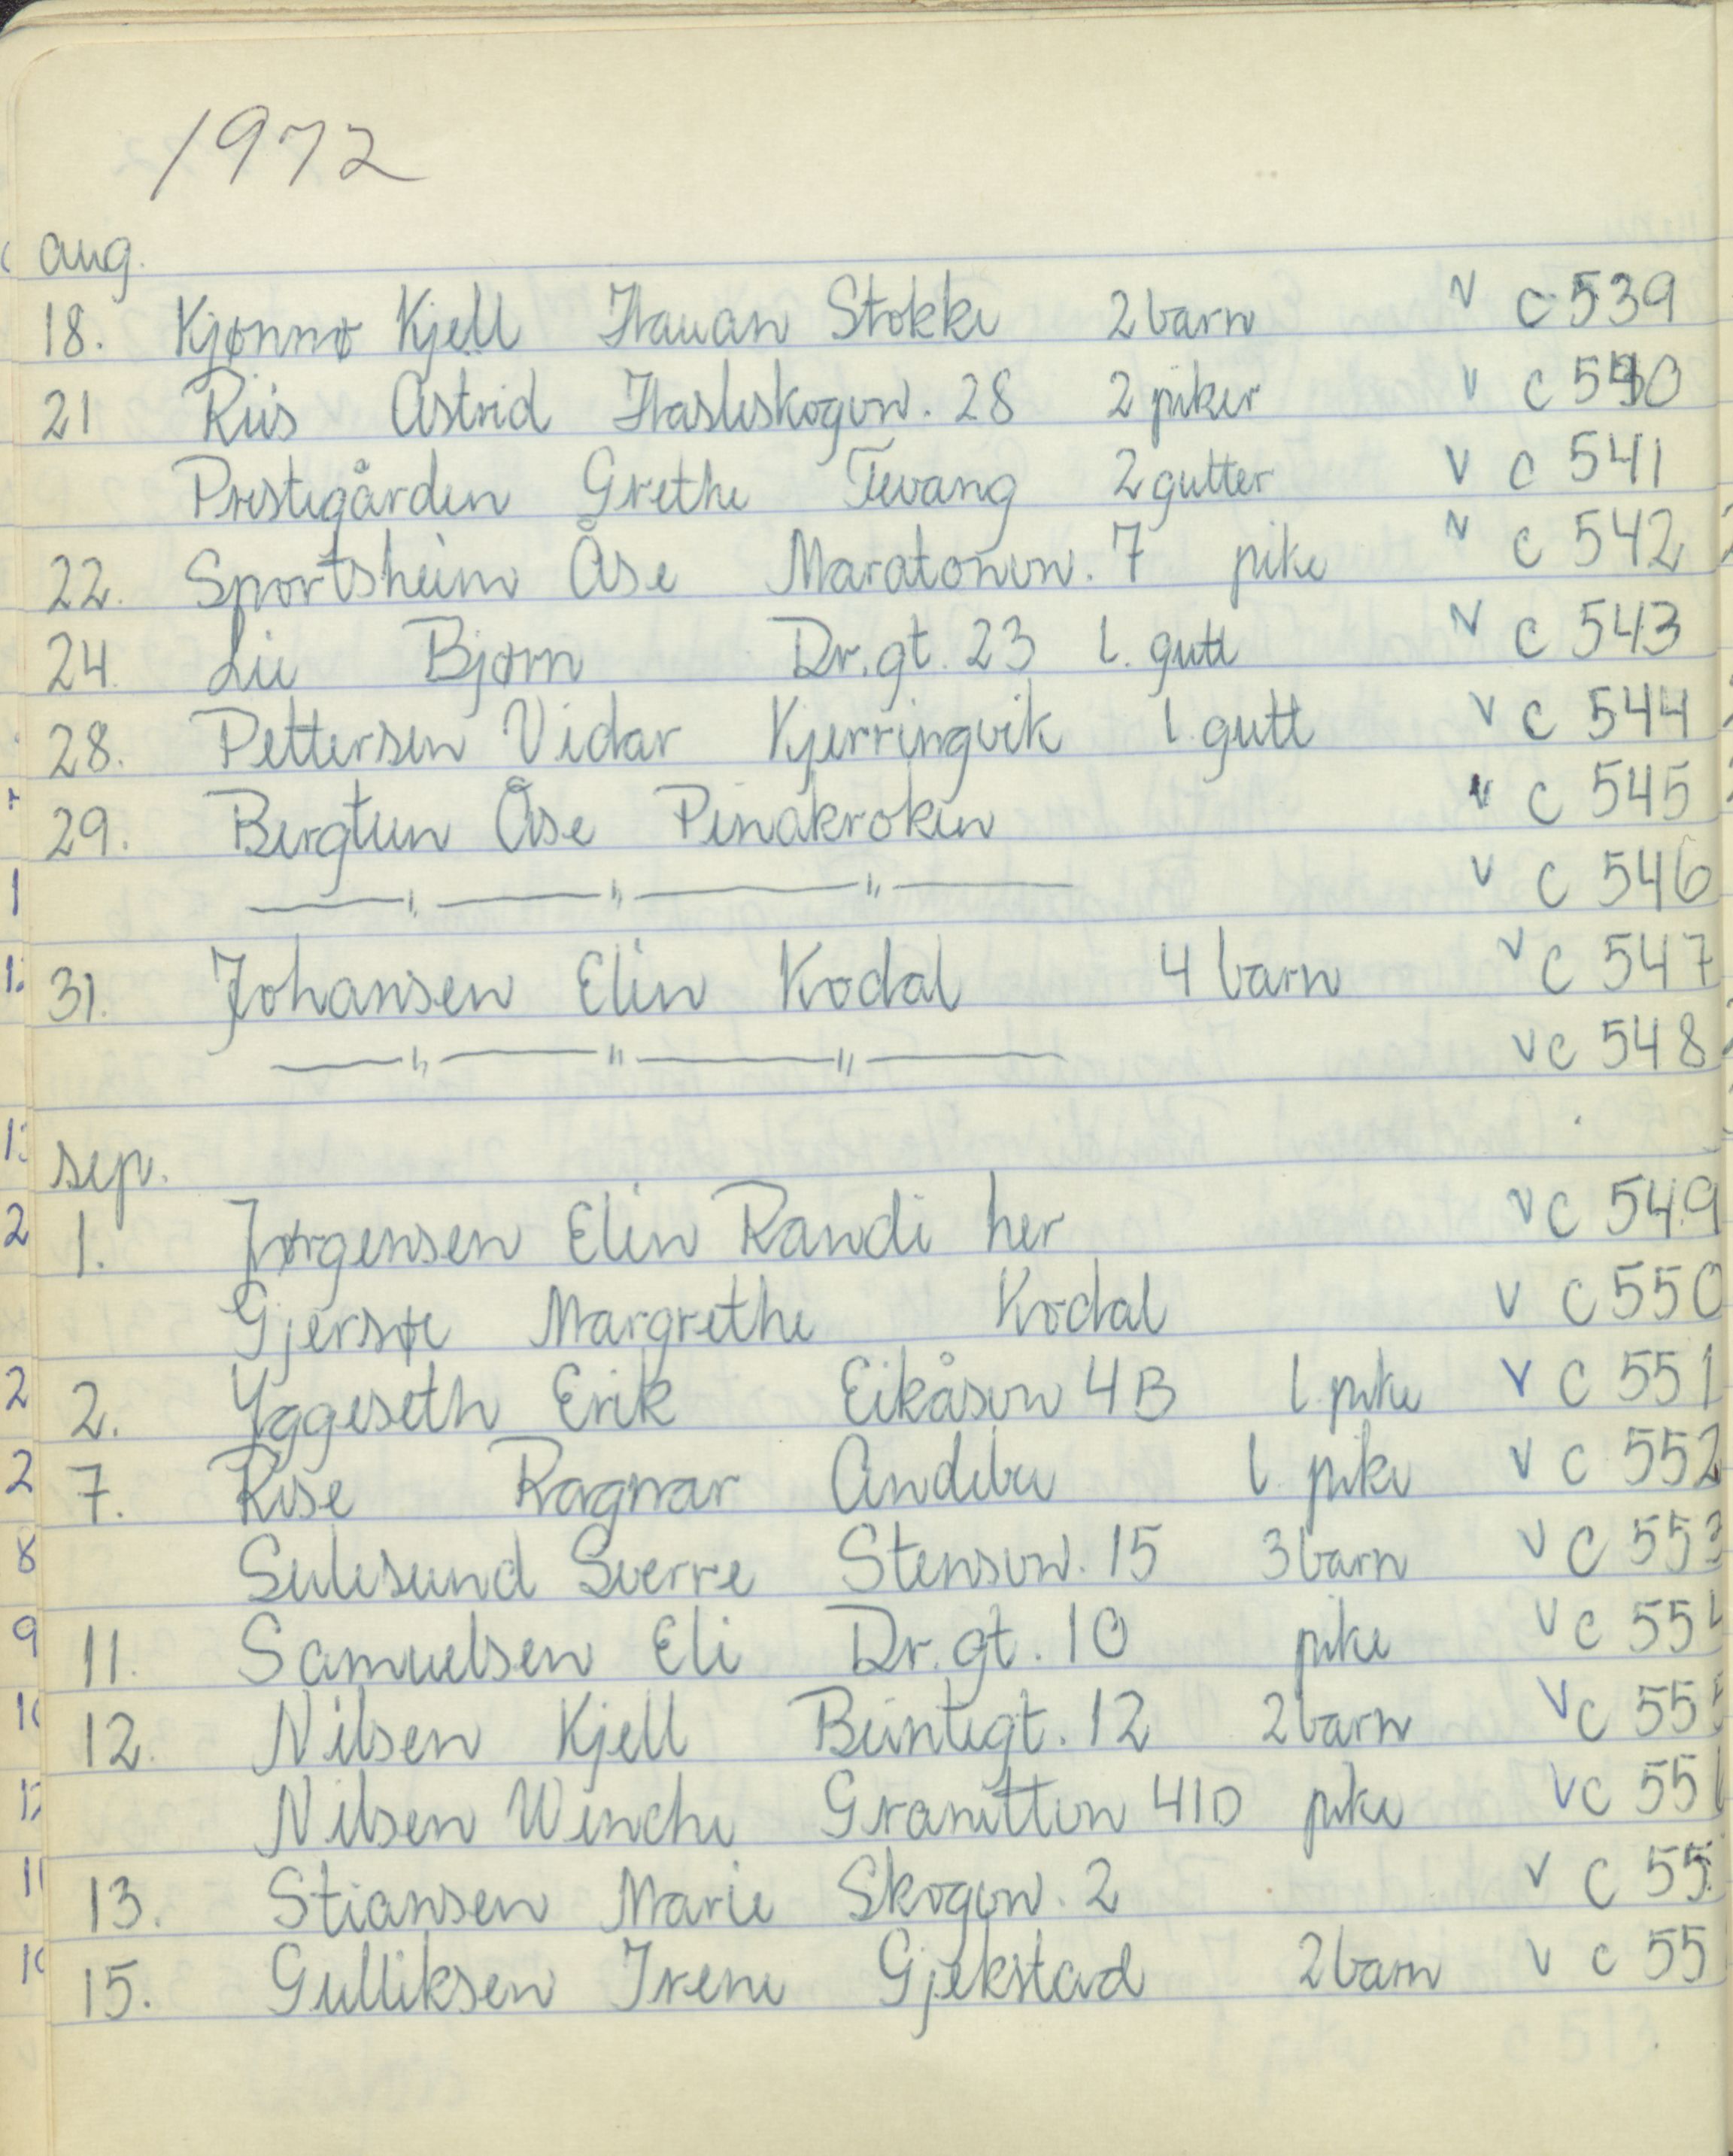 1972
aug.
18. Kjønnø Kjell Hauan Stokke 2 barn v c 539
21 Riis Astrid Hasleskogvn. 28 2 piker v c 540
Prestegården Grethe Tevang 2 gutter v c 541
22. Sportsheim Åse Maratonvn. 7 pike v c 542
24. Lie Bjørn Dr.gt. 23 1. gutt v c 543
28. Pettersen Vidar Kjerringvik 1. gutt v c 544
29. Bergtun Åse Pinakroken v c 545
—— " —— " —— " —— v c 546
31. Johansen Elin Kodal 4 barn v c 547
—— " —— " —— " —— v c 548
sep.
1. Jørgensen Elin Randi her v c 549
Gjersøe Margrethe Kodal v c 550
2. Yggeseth Erik Eikåsvn 4B 1. pike v c 551
7. Rise Ragnar Andebu 1. pike v c 552
Sulesund Sverre Stensvn. 15 3 barn v c 553
11. Samuelsen Eli Dr.gt. 10 pike v c 55
12. Nilsen Kjell Bentegt. 12 2 barn v c 55
Nilsen Wenche Granittvn 41D pike v c 55
13. Stiansen Marie Skogvn. 2 v c 55
15. Gulliksen Irene Gjekstad 2 barn v c 55